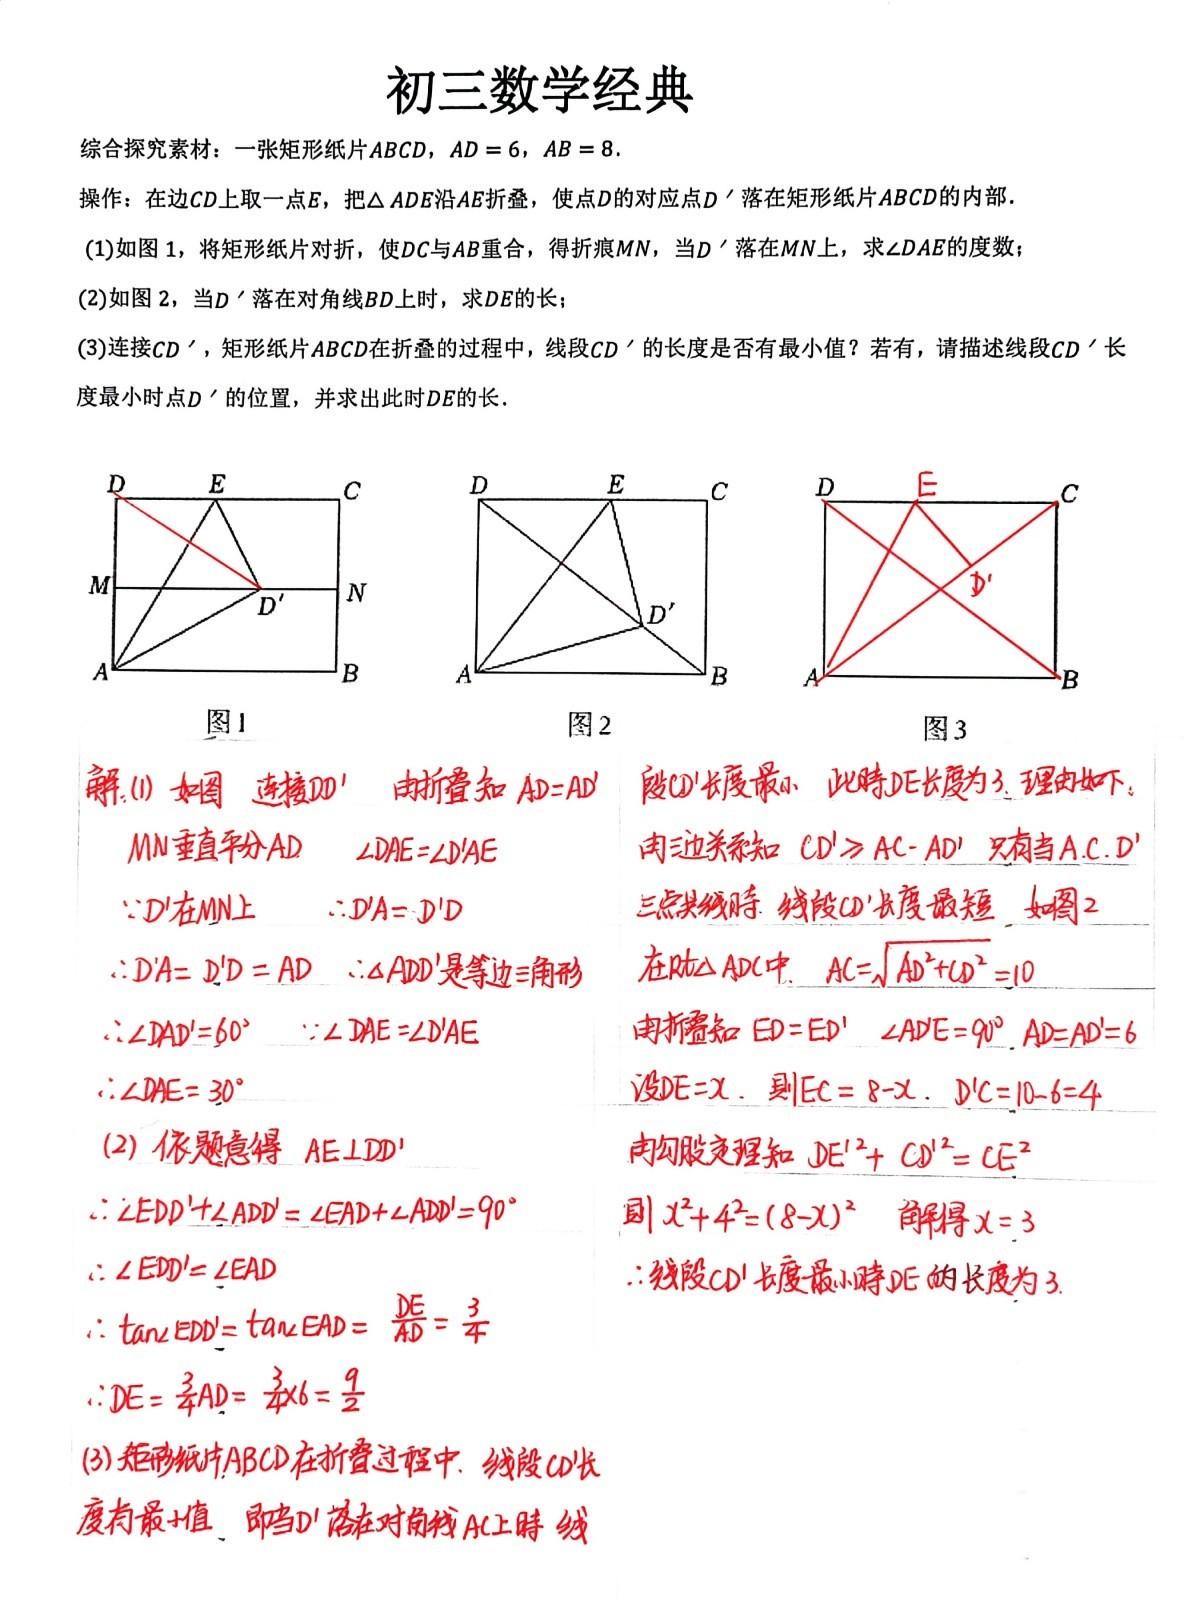 初三数学经典
综合探究素材：一张矩形纸片ABCD，AD = 6，AB = 8．
操作：在边CD上取一点E，把△ ADE沿AE折叠，使点D的对应点D′落在矩形纸片ABCD的内部．
(1)如图 1，将矩形纸片对折，使DC与AB重合，得折痕MN，当D′落在MN上，求∠DAE的度数；
(2)如图 2，当D′落在对角线BD上时，求DE的长；
(3)连接CD′，矩形纸片ABCD在折叠的过程中，线段CD′的长度是否有最小值？若有，请描述线段CD′长
度最小时点D′的位置，并求出此时DE的长．
D E C
M D' N
A B
图1
D E C
D'
A B
图2
D E C
D'
A B
图3
解.(1) 如图 连接DD' 由折叠知 AD=AD'
MN垂直平分AD ∠DAE=∠D'AE
∵D'在MN上 ∴D'A= D'D
∴D'A= D'D = AD ∴△ADD'是等边三角形
∴∠DAD'=60° ∵∠DAE=∠D'AE
∴∠DAE= 30°
(2) 依题意得 AE⊥DD'
∴∠EDD'+∠ADD'=∠EAD+∠ADD'=90°
∴∠EDD'=∠EAD
∴tan∠EDD'= tan∠EAD= DE/AD = 3/4
∴DE= 3/4AD= 3/4×6= 9/2
(3)矩形纸片ABCD在折叠过程中. 线段CD'长
度有最小值 即当D'落在对角线AC上時 线
段CD'长度最小 此時DE长度为3. 理由如下：
由三边关系知 CD'≥AC-AD' 只有当A.C.D'
三点共线時 线段CD'长度最短 如图2
在Rt△ADC中. AC=√AD²+CD² =10
由折叠知 ED=ED' ∠AD'E=90° AD=AD'=6
设DE=x. 則EC= 8-x. D'C=10-6=4
由勾股定理知 DE'²+ CD'²= CE²
則 x²+4²=(8-x)² 解得 x=3
∴线段CD'长度最小時DE的长度为3.